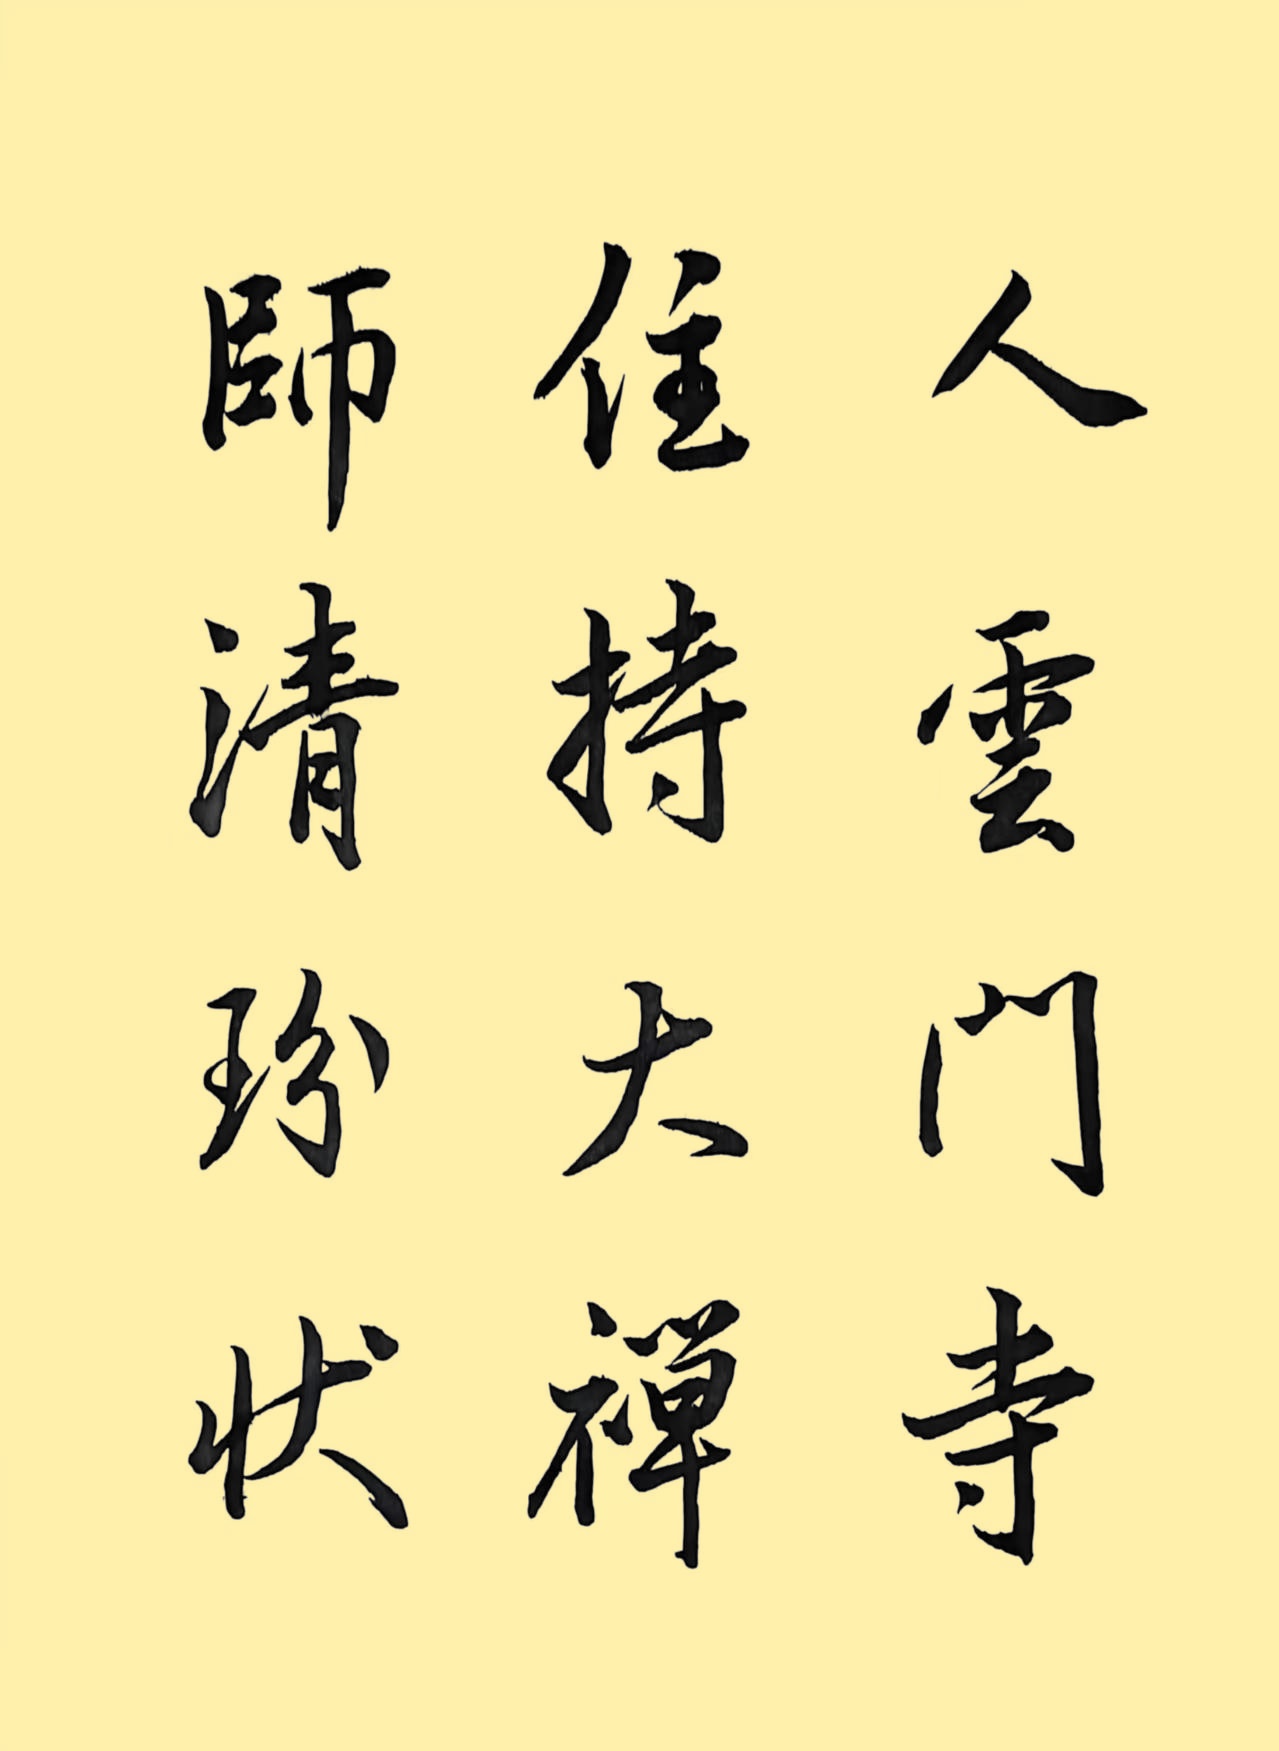 人雲門寺
住持大禪
師清玢狀